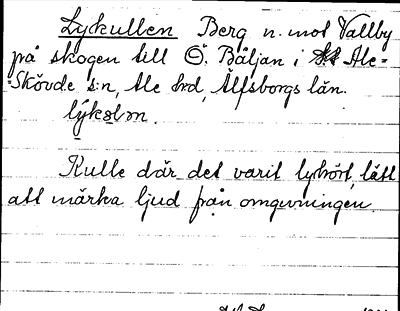 Lykullen Berg n. mot Vallby
på skogen till Ö. Båljan i Ale-
-Skövde s:n, Ale hrd, Älfsborgs län.
Kulle där det varit lyhört, lätt
att märka ljud från omgivningen.